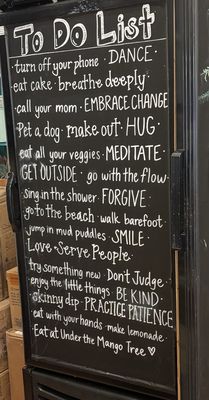 To Do List
turn off your phone · DANCE ·
eat cake · breathe deeply ·
call your mom · EMBRACE CHANGE
Pet a dog · make out · HUG ·
eat all your veggies · MEDITATE ·
GET OUTSIDE · go with the flow
sing in the shower · FORGIVE ·
go to the beach · walk barefoot ·
jump in mud puddles · SMILE ·
Love · Serve People ·
try something new · Don't Judge
enjoy the little things · BE KIND ·
skinny dip · PRACTICE PATIENCE
eat with your hands · make lemonade ·
Eat at Under the Mango Tree ♡